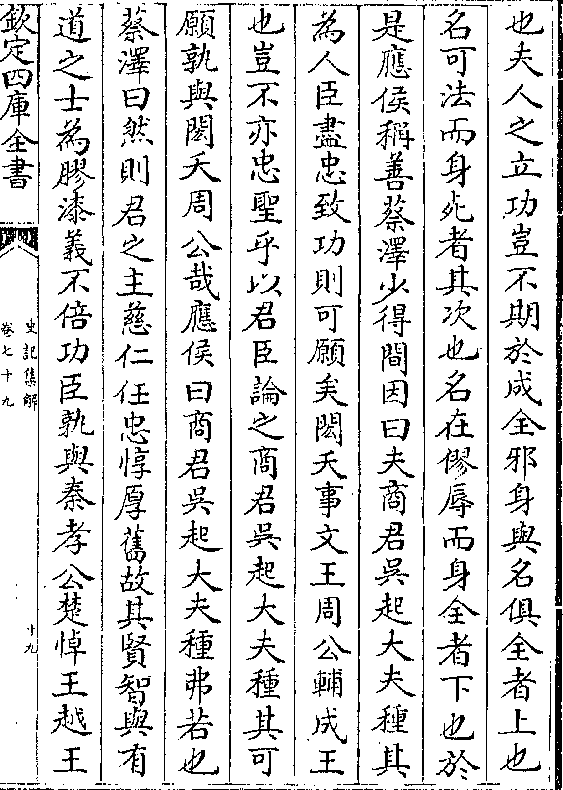 也夫人之立功豈不期於成全邪身與名俱全者上也
名可法而身死者其次也名在僇辱而身全者下也於
是應侯稱善蔡澤少得間因曰夫商君吳起大夫種其
為人臣盡忠致功則可願矣閎夭事文王周公輔成王
也豈不亦忠聖乎以君臣論之商君吳起大夫種其可
願孰與閎夭周公哉應侯曰商君吳起大夫種弗若也
蔡澤曰然則君之主慈仁任忠惇厚舊故其賢智與有
道之士為膠漆義不倍功臣孰與秦孝公楚悼王越王
欽定四庫全書
史記集解
卷七十九
十九